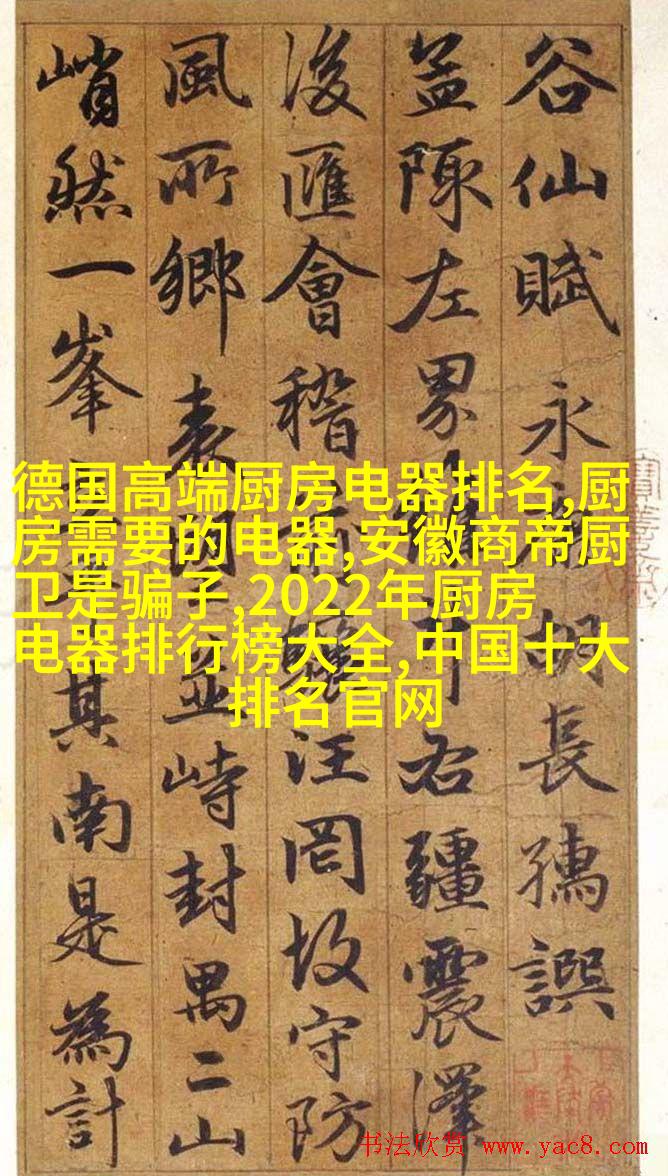 谷仙賦 永胡長孺譔
盖陳左界右疆震澤
後匯會稽汪罔故守防
風所鄉表並峙封禺二山
峭然一峯其南是為計
德国高端厨房电器排名,厨
房需要的电器,安徽商帝厨
卫是骗子,2022年厨房
电器排行榜大全,中国十大
排名官网
书法欣赏 www.yac8.com